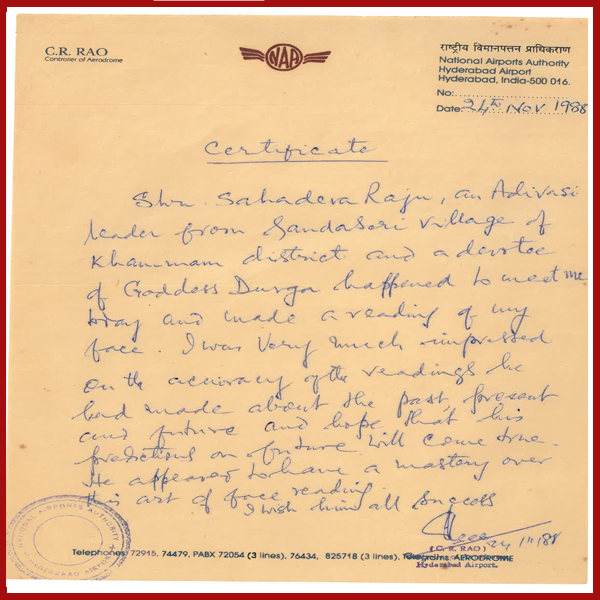 C.R. RAO
Controller of Aerodrome
NAA
राष्ट्रीय विमानपत्तन प्राधिकरण
National Airports Authority
Hyderabad Airport
Hyderabad, India-500 016.
No:
Date: 24th Nov 1988
Certificate
Shri. Sahadeva Raju, an Adivasi
leader from Gandaseri village of
Khammam district and a devotee
of Goddess Durga happened to meet me
today and made a reading of my
face. I was very much impressed
on the accuracy of the readings he
had made about the past, present
and future and hope that his
predictions on future will come true.
He appeared to have a mastery over
this art of face reading.
I wish him all success
24/11/88
(C. R. RAO)
Hyderabad Airport.
Telephones: 72915, 74479, PABX 72054 (3 lines), 76434, 825718 (3 lines), Telegrams: AERODROME
NATIONAL AIRPORTS AUTHORITY
HYDERABAD AIRPORT